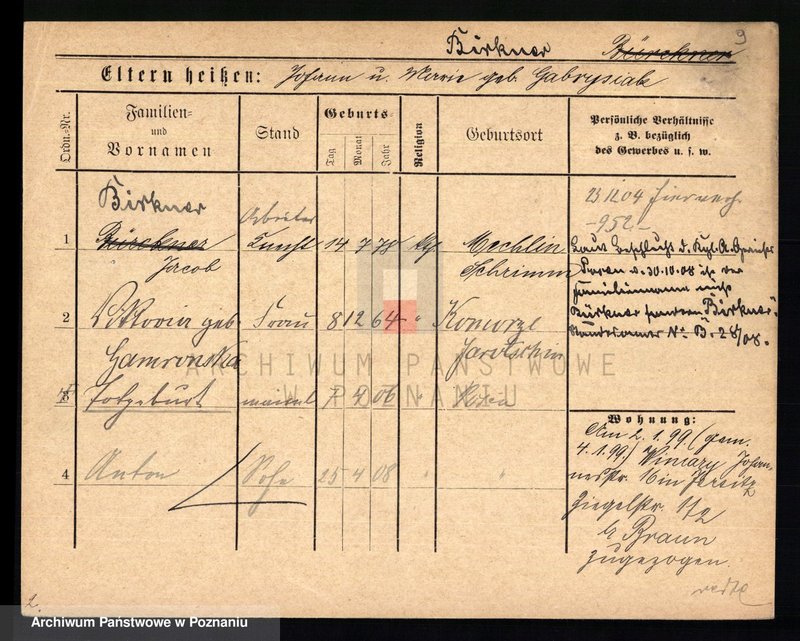 9
Birkner Bürckner
Eltern heißen: Johann u. Marie geb. Gabrysiak
Ordn.-Nr.
Familien- und Vornamen
Stand
Geburts-
Tag
Monat
Jahr
Religion
Geburtsort
Persönliche Verhältnisse
z. B. bezüglich
des Gewerbes u. s. w.
Birkner
Arbeiter
23.12.04
-952-
1 Bürckner 14 7 78 Kth Mechlin
Jacob Schrimm
Laut Beschluß d. Kgl.
Posen d. 30.10.08 ist der
Familienname nicht
Bürkner sondern "Birkner".
No B. 28/08.
2 geb. Frau 8 12 64 " Komorze
Gawronska Jarotschin
3 Totgeburt 7 4 06 " Posen
4 Anton Sohn 25 4 08 " "
Wohnung:
Am 2.1.99. (gem.
4.1.99.) Winiary Johan-
nesstr. 16 in Jersitz
Ziegelstr. 112
b/ Braun
zugezogen.
ARCHIWUM PAŃSTWOWE
W POZNANIU
2.
Archiwum Państwowe w Poznaniu